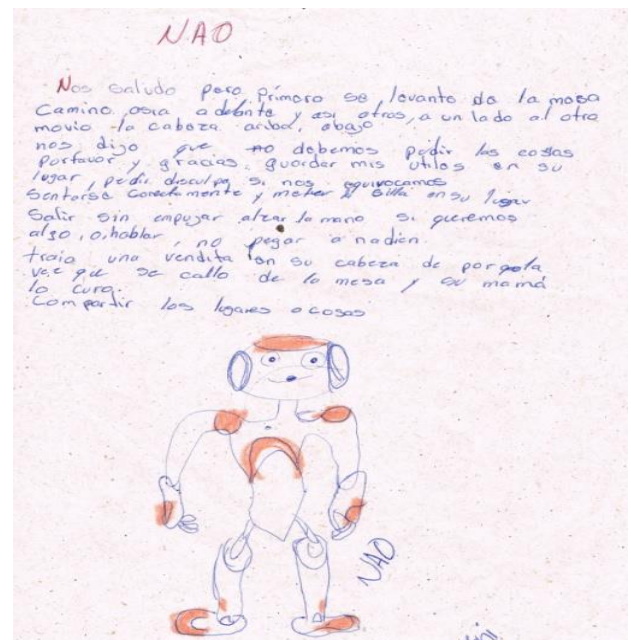 NAO
Nos saludo pero primero se levanto de la mesa
Camino asia adelante y asi atras, a un lado al otro
movio la cabeza ariba, abajo
nos, dijo que no debemos pedir las cosas
porfavor y gracias, guardar mis utilos en su
lugar, pedir disculpa si nos equivocamos
Sentarse corectamente y meter silla en su lugar
Salir sin empujar alzar la mano si queremos
algo, o, hablar, no pegar a nadien.
traia una vendita en su cabeza de por
vez que se callo de la mesa y su mamá
lo curo.
Compardir los lugares o cosas
NAO